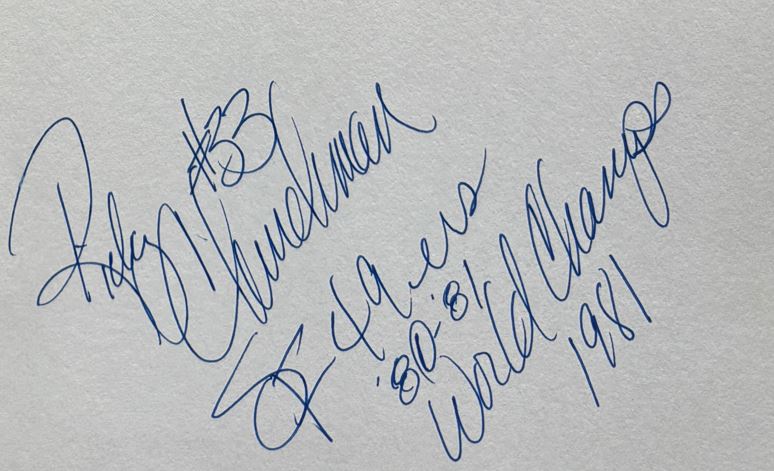 #33
Ricky Churchman
SF 49ers
'80-'81
World Champs
1981